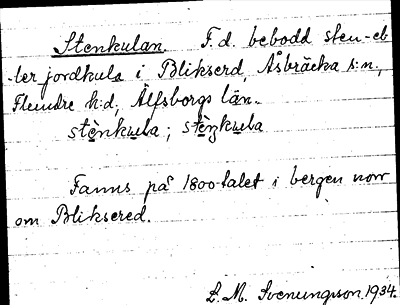 Stenkulan. F.d. bebodd sten-el-
ler jordkula i Blikserd, Åsbräcka s:n,
Flundre h:d, Älfsborgs län.
stènkula; stèŋkula
Fanns på 1800-talet i bergen norr
om Bliksered.
L. M. Svenungsson. 1934.